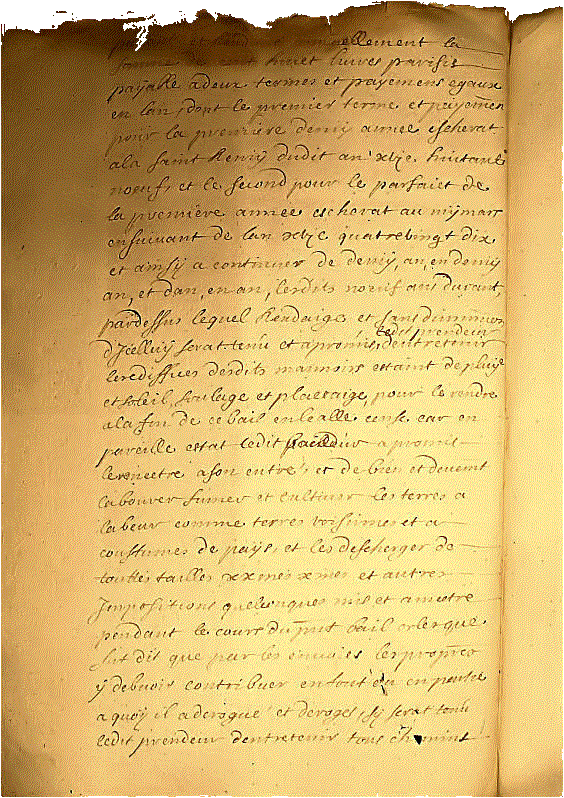 et rendu annuellement la
somme de cent huict livres parisis
payable a deux termes et payemens egaux
en lan, dont le premier terme et payemen
pour la premiere demy annee escherat
a la saint Remy dudit an xvjc huictante
noeuf, et le second pour le parfaict de
la premiere annee escherat au my mars
ensuivant de lan xvjc quatrevingt dix
et ainsy a continuer de demy, an, en demy
an, et dan, en an, lesdits noeuf ans durant,
pardessus lequel Rendaige, et sans diminuon
ledit prendeur
d'Icelluy serat tenu et a promis, de entretenir
les ediffices desdits manoirs estaint de pluye
et soleil, soulage et placcaige, pour le rendre
a la fin de ce bail en telle cense car en
pareille estat ledit bailleur a promis
le mectre a son entree, et de bien et deuement
labourer fumer et cultiver les terres a
labeur comme terres voisines et a
coustumes de pays, et les descherger de
touttes tailles xxmes xmes et autres
Impositions quelconques mis et a mectre
pendant le cours du pnt bail orles que
fut dit que par les envoies les propres
y debvois contribuer en tout ou en partie
a quoy il a derogué et deroge, sy serat tenu
ledit prendeur dentretenir tous chemins